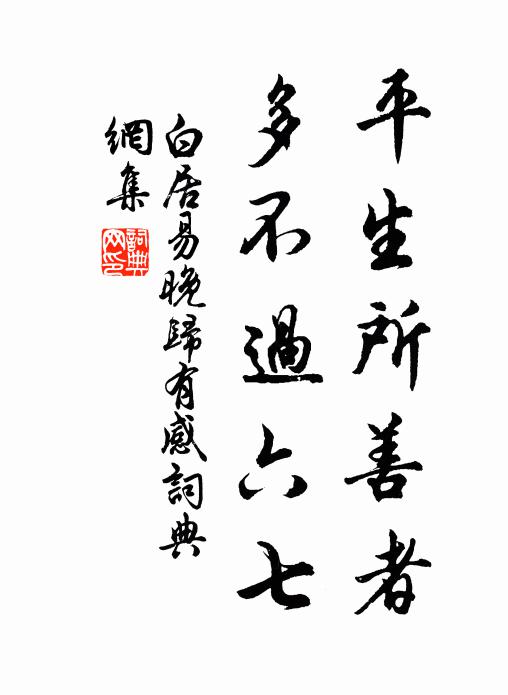 平生所善者
多不過六七
白居易晚歸有感詞典
網集
詞典
網印